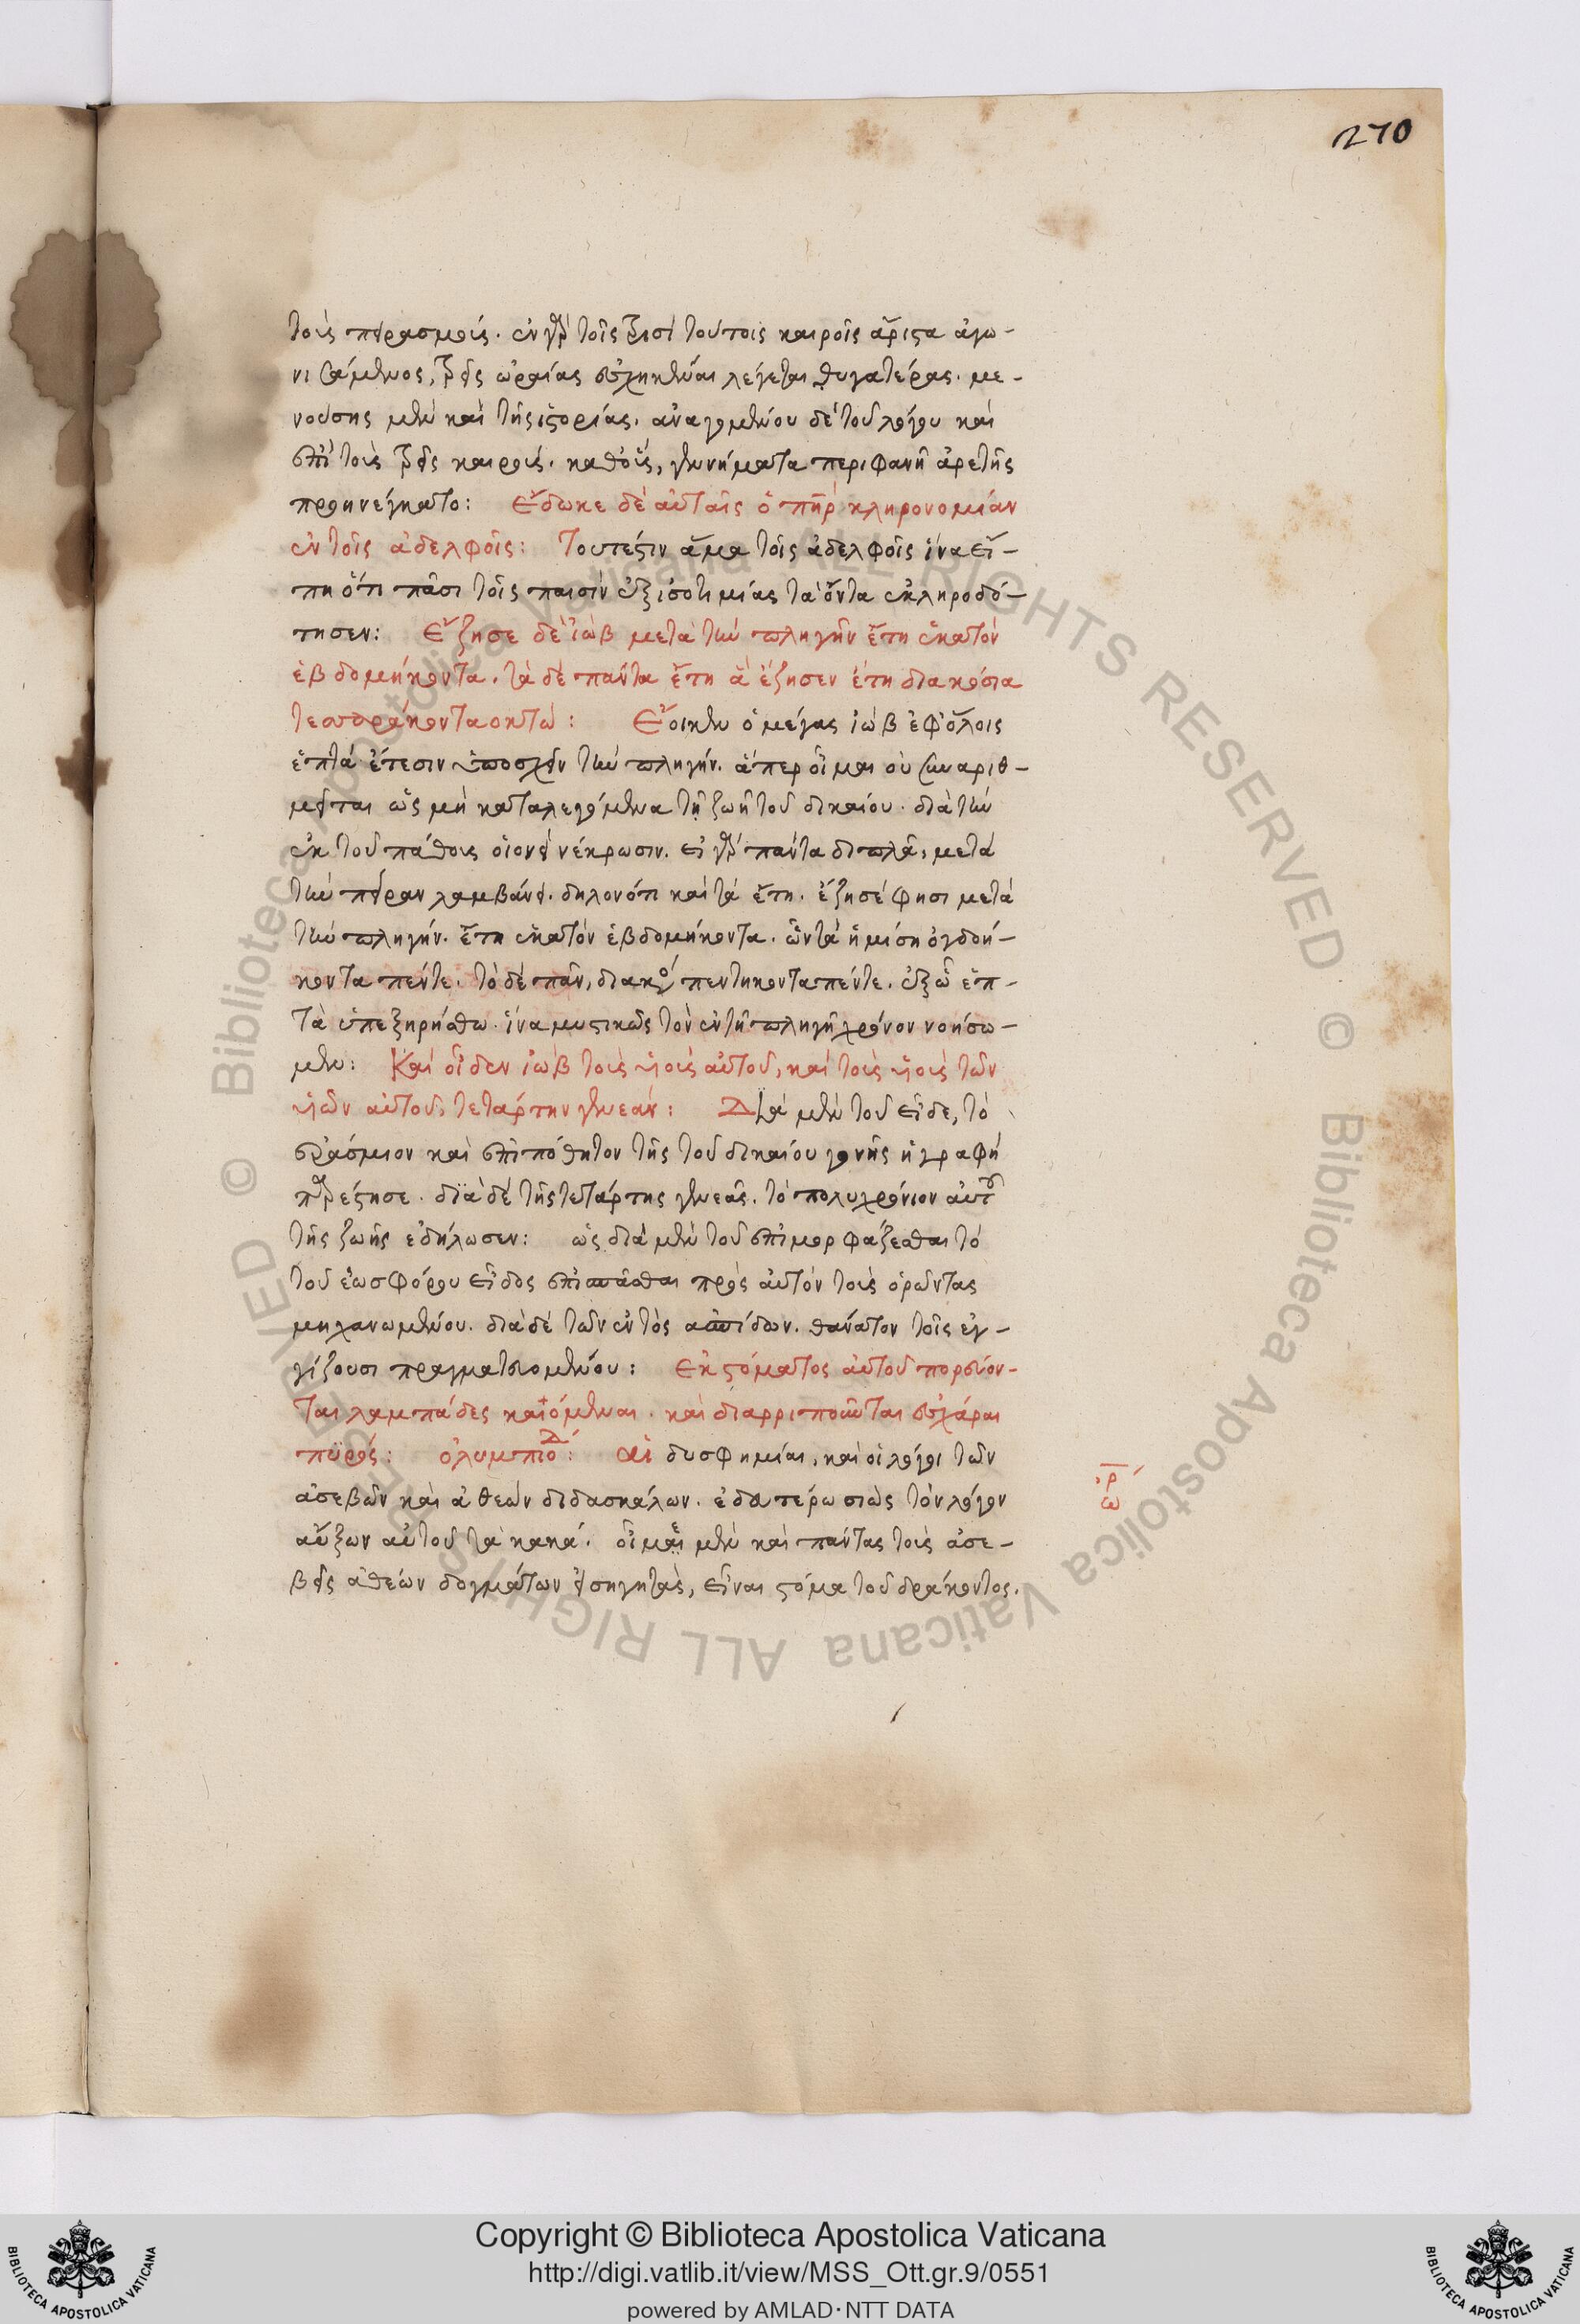 270
τοὺς πειρασμούς. ἐν γὰρ τοῖς τρισὶ τούτοις καιροῖς ἄριστα ἀγω-
νισάμενος, τρεῖς ὡραίας ἐσχηκέναι λέγεται θυγατέρας. με-
νούσης μὲν καὶ τῆς ἱστορίας. ἀναγομένου δὲ τοῦ λόγου καὶ
ἐπὶ τοὺς τρεῖς καιρούς. καθ' οὓς, γεννήματα περιφανῆ ἀρετῆς
προηνέγκατο: Ἔδωκε δὲ αὐταῖς ὁ πηρ κληρονομίαν
ἐν τοῖς ἀδελφοῖς: Τουτέστιν ἅμα τοῖς ἀδελφοῖς ἵνα εἴ-
πη ὅτι πᾶσι τοῖς παισὶν ἐξ ἰσοτιμίας τὰ ὄντα ἐκληροδό-
τησεν: Ἔζησε δὲ ἰὼβ μετὰ τὴν πληγὴν ἔτη ἑκατὸν
ἑβδομήκοντα. τὰ δὲ πάντα ἔτη ἃ ἔζησεν ἔτη διακόσια
τεσσαράκοντα ὀκτώ: Ἔοικεν ὁ μέγας ἰὼβ ἐφ' ὅλοις
ἑπτὰ ἔτεσιν ὑποσχεῖν τὴν πληγήν. ἅπερ οἶμαι οὐ συναριθ-
μεῖται ὡς μὴ καταλεγόμενα τῇ ζωῇ τοῦ δικαίου. διὰ τὴν
ἐκ τοῦ πάθους οἱονεὶ νέκρωσιν. εἰ γὰρ πάντα διπλᾶ, μετὰ
τὴν πεῖραν λαμβάνει. δηλονότι καὶ τὰ ἔτη. ἔζησέ φησι μετὰ
τὴν πληγήν. ἔτη ἑκατὸν ἑβδομήκοντα. ὧν τὰ ἡμίση ὀγδοή-
κοντα πέντε. τὸ δὲ πᾶν, διακό πεντήκοντα πέντε. ἐξ ὧ ἑπ-
τὰ ὑπεξηρήσθω. ἵνα μυστικῶς τὸν ἐν τῇ πληγῇ χρόνον νοήσω-
μεν: Καὶ οἶδεν ἰὼβ τοὺς υἱοὺς αὐτοῦ, καὶ τοὺς υἱοὺς τῶν
υἱῶν αὐτοῦ, τετάρτην γενεάν: Διὰ μὲν τοῦ εἶδε, τὸ
ἐράσμιον καὶ ἐπιπόθητον τῆς τοῦ δικαίου γονῆς ἡ γραφὴ
παρέστησε. διὰ δὲ τῆς τετάρτης γενεᾶς. τὸ πολυχρόνιον αὐτοῦ
τῆς ζωῆς ἐδήλωσεν: ὡς διὰ μὲν τοῦ ἐπιμορφάζεσθαι τὸ
τοῦ ἑωσφόρου εἶδος ἐπισπᾶσθαι πρὸς αὐτὸν τοὺς ὁρῶντας
μηχανωμένου. διὰ δὲ τῶν ἐντὸς ἀσπίδων. θάνατον τοῖς ἐγ-
γίζουσι πραγματευομένου: Ἐκ στόματος αὐτοῦ πορεύον-
ται λαμπάδες καιόμεναι. καὶ διαρριπτοῦνται ἐσχάραι
πυρός: ὀλυμπιοδ: αἱ δυσφημίαι, καὶ οἱ λόγοι τῶν
ἀσεβῶν καὶ ἀθέων διδασκάλων. ἐδευτέρωσεν ὡς τὸν λόγον
αὔξων αὐτοῦ τὰ κακά. οἶμαι μὲν καὶ πάντας τοὺς ἀσε-
βεῖς ἀθέων δογμάτων εἰσηγητὰς, εἶναι στόμα τοῦ δράκοντος.
Copyright © Biblioteca Apostolica Vaticana
http://digi.vatlib.it/view/MSS_Ott.gr.9/0551
powered by AMLAD·NTT DATA